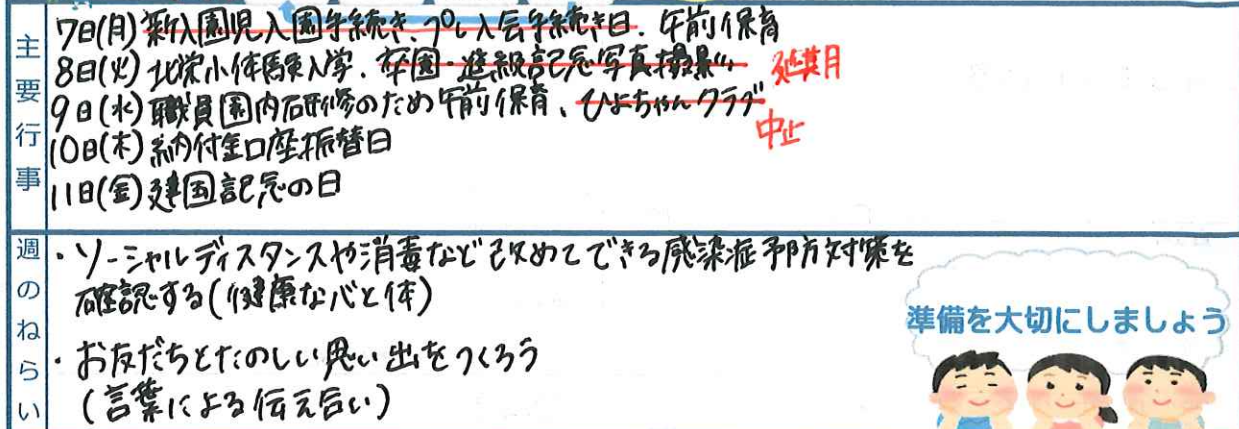 主要行事
7日(月)新入園児入園手続き、プレ入会手続き日、午前保育
8日(火)北栄小体験入学、卒園・進級記念写真撮影 延期
9日(水)職員園内研修のため午前保育、ひよちゃんクラブ
中止
10日(木)納付金口座振替日
11日(金)建国記念の日
週のねらい
・ソーシャルディスタンスや消毒など改めてできる感染症予防対策を
確認する(健康な心と体)
準備を大切にしましょう
・お友だちとたのしい思い出をつくろう
(言葉による伝え合い)